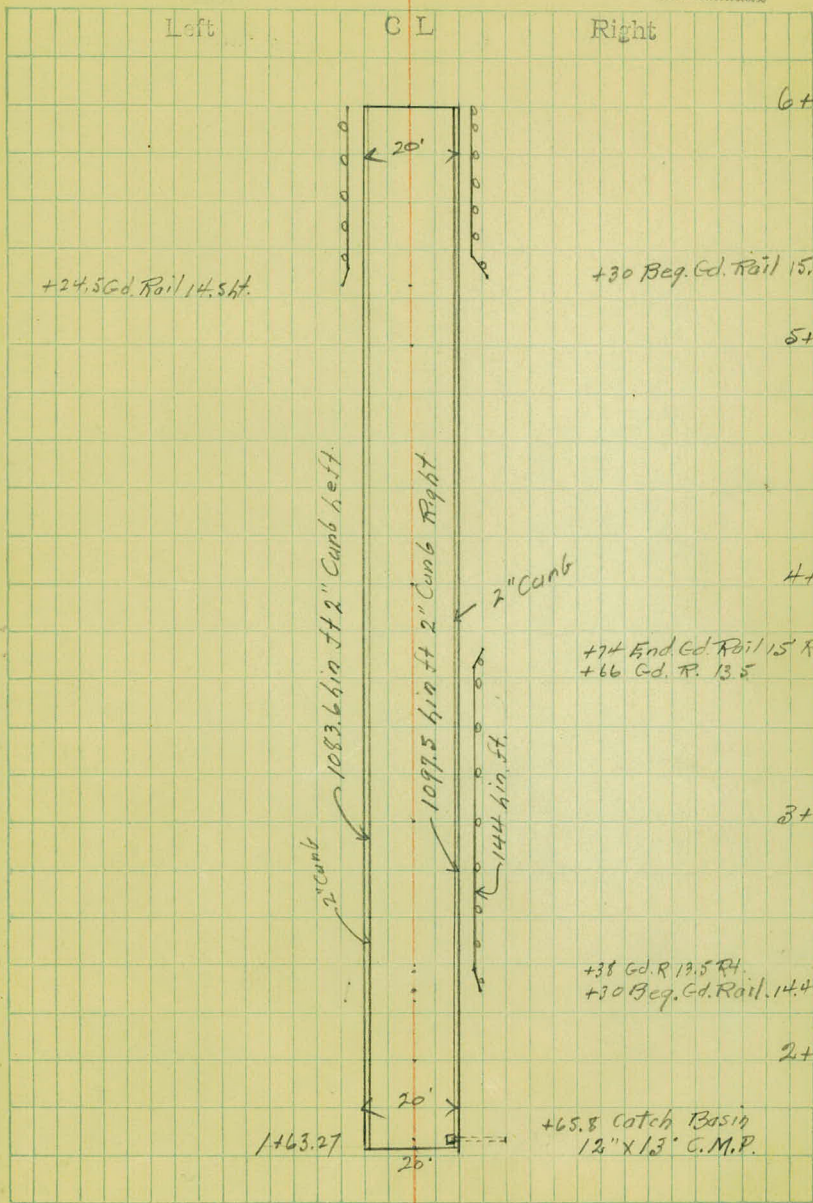 Left C L Right
6+
20'
+24.5 Gd. Rail 14.5 Lt.
+30 Beg. Gd. Rail 15.
5+
1083.6 Lin ft 2" Curb Left
1097.5 Lin ft 2" Curb Right
2" Curb
4+
+74 End Gd. Rail 15' R
+66 Gd. R. 13.5
3+
144 Lin. ft.
2" Curb
+38 Gd. R 13.5 Rt.
+30 Beg. Gd. Rail. 14.4
2+
20'
+65.8 Catch Basin
12" X 13' C.M.P.
1+63.27
20'